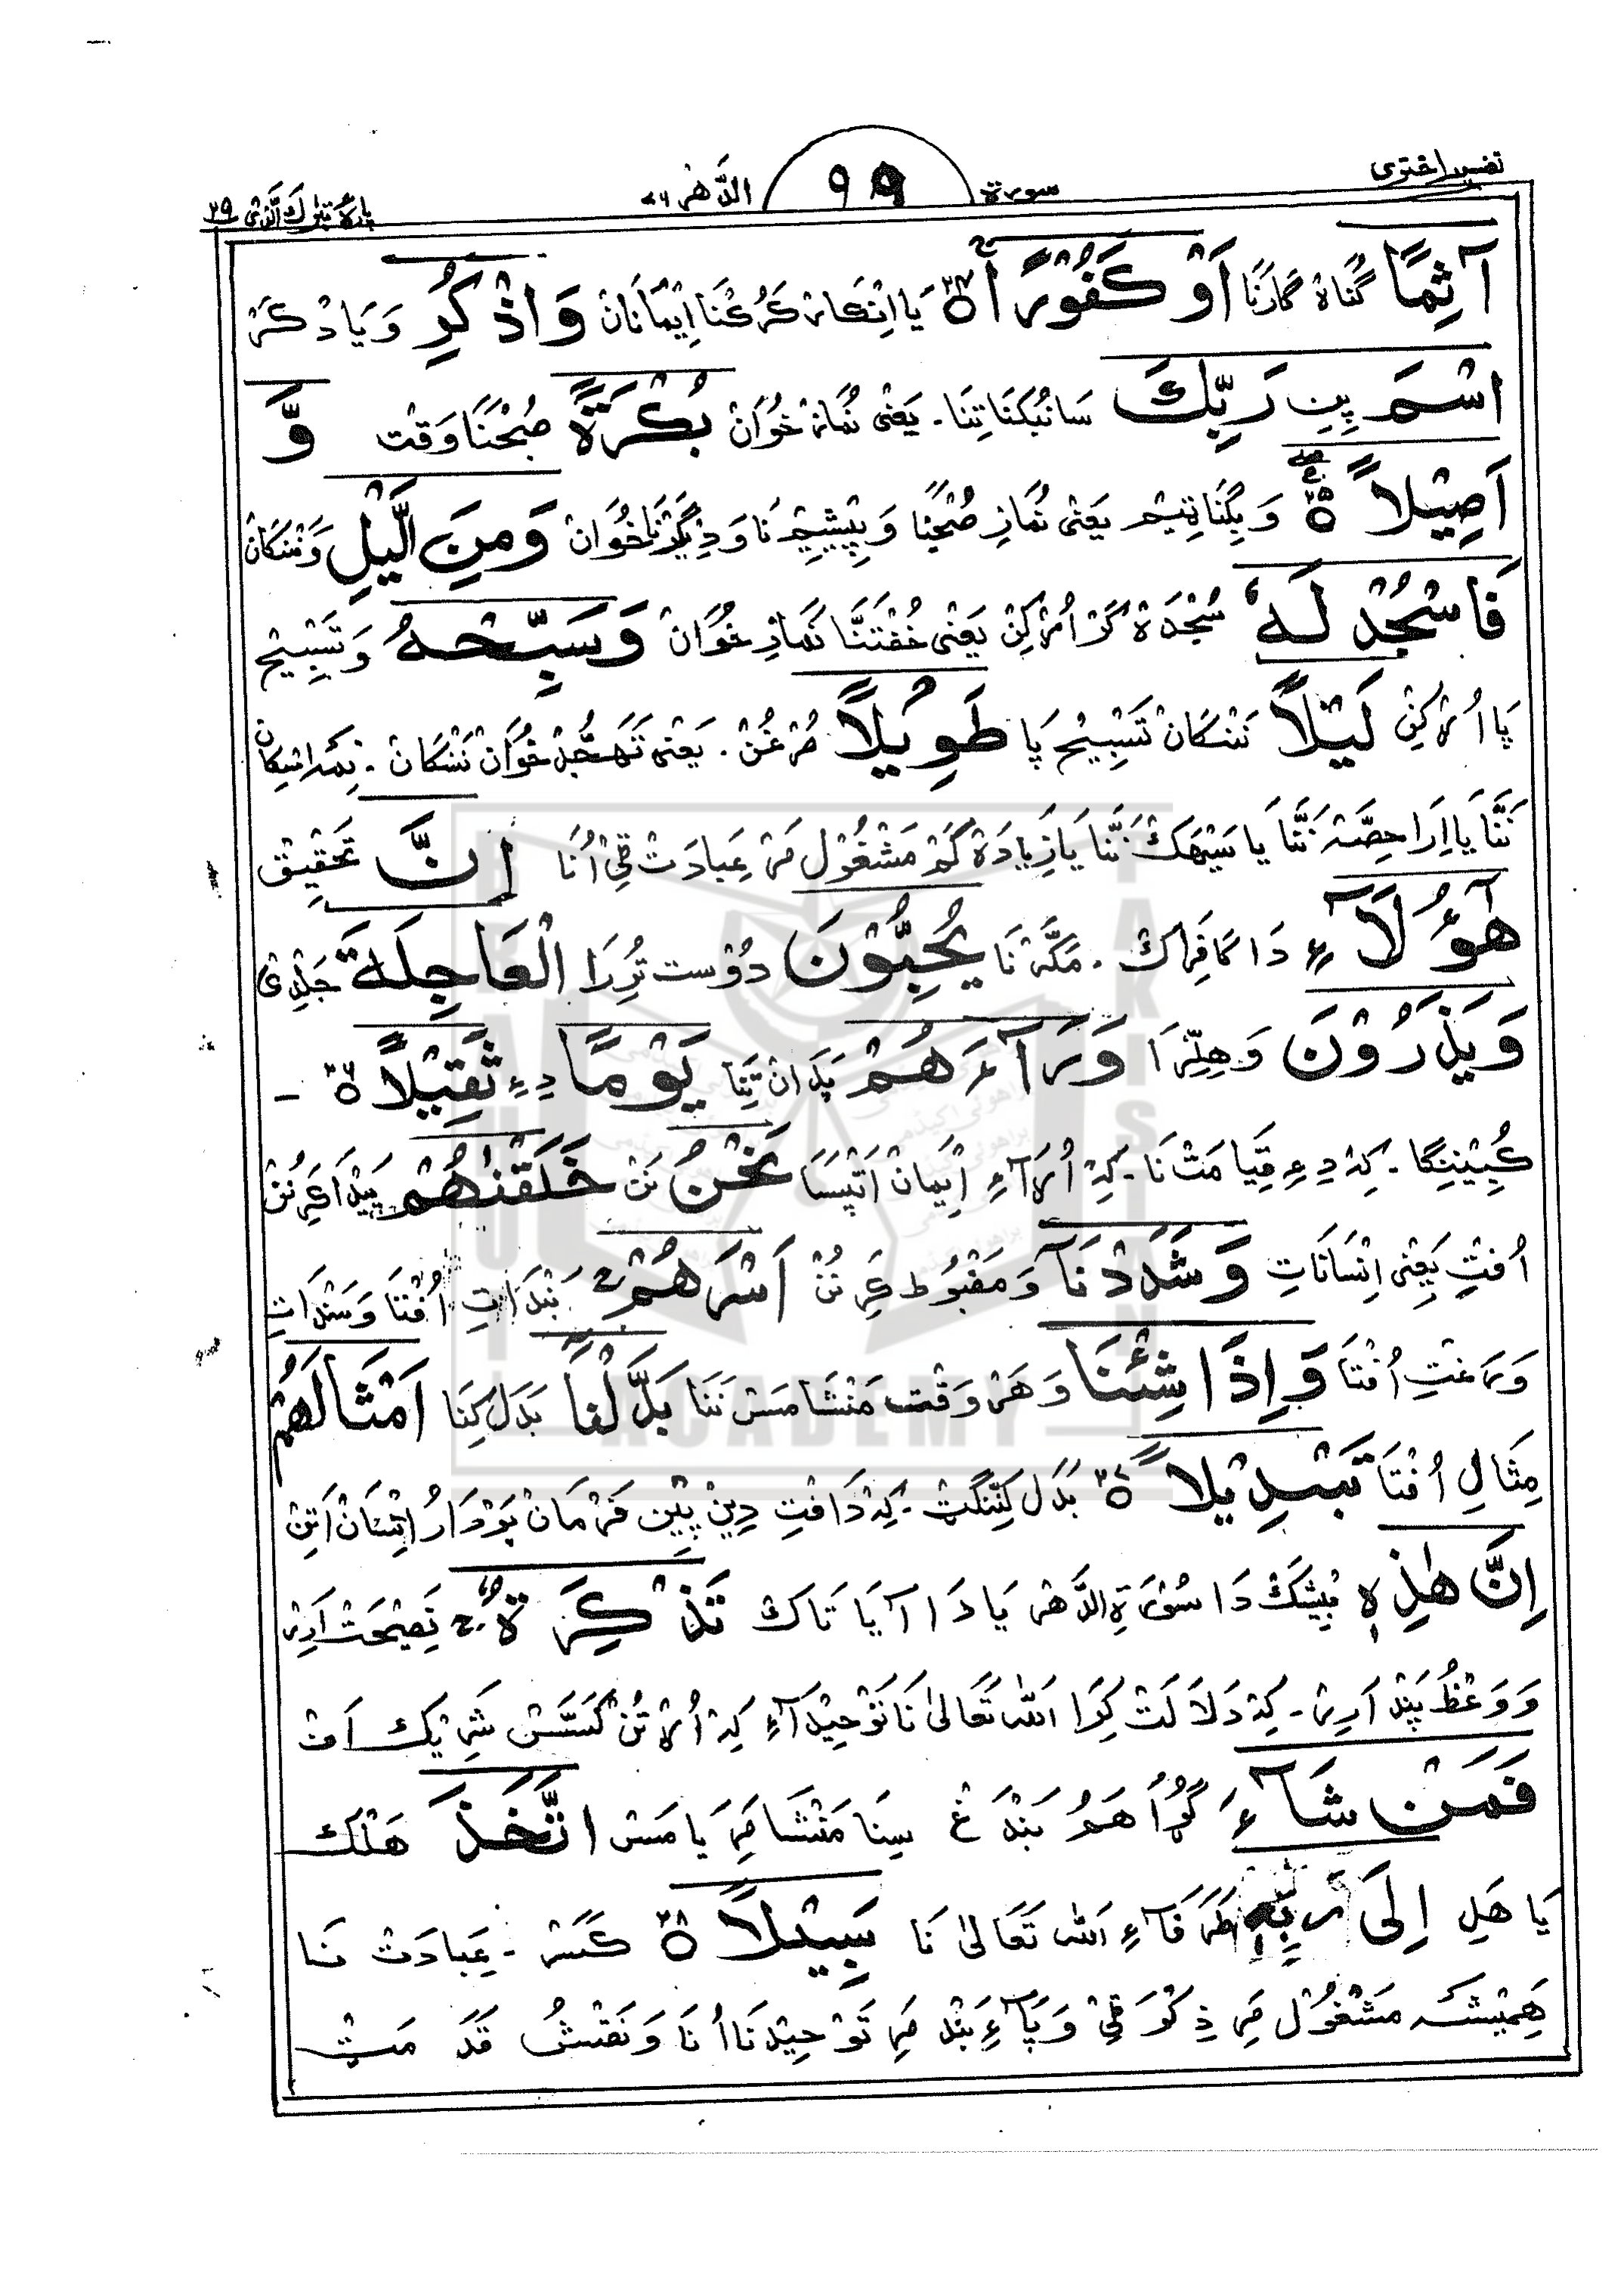 تفسیر اختری
سورۃ ۹۹ الدَّھْر ۷۶
پارہ تبارک الذی ۲۹
آثِمًا گُناہ گارَنَا اَوْ کَفُوْرًا ۲۴ یَا اِنْکَار کَرُکُنَا اِیْمَانَانْ وَاذْکُرِ وَیَادْ کَرْ
اسْمَ پِنِ رَبِّكَ سَائبُکَنَا تِنَا۔ یَعْنِی نُمَازْ خُوَانْ بُکْرَةً صُبْحَنَا وَقْت وَّ
اَصِیْلًا ۲۵ وَبِیْگَنَا یَعْنِی نُمَازِ صُبْحَنَا وَپِیْشِیْم نَا وَدِیْگَرْنَا خُوَانْ وَمِنَ الَّیْلِ وَنَنْکَانْ
فَاسْجُدْ لَهٗ سُجْدَہ کَرْ اُمْرکِنْ یَعْنِی خُفْتَنَّا نَمَازِ خُوَانْ وَسَبِّحْهُ وَتَسْبِیْح
پَا اُرْکِنْ لَیْلًا نَنْکَانْ تَسْبِیْح پَا طَوِیْلًا مُرْغُنْ۔ یَعْنِی تَهَجُّدْ خُوَانْ نَنْکَانْ۔
نَنَّا یَا اِرَا حِصَّہ نَنَّا یَا سَیْهَکْ نَنَّا یَا زِیَادَہ کَمْ مَشْغُوْل مَرْ عِبَادَتْ ٹِیْ اُنَا اِنَّ تَحْقِیْق
هٰٓؤُلَآءِ دَا کَافِرَاک۔ مَکَّہ نَا یُحِبُّوْنَ دُوْسْت تُرِرَا الْعَاجِلَةَ جَلْدِیْ
وَیَذَرُوْنَ وَهِلِّرَا وَرَآءَهُمْ پَدَانْ تِنَا یَوْمًا دِءِ ثَقِیْلًا ۲۷ -
کُبِیْنِنْگَا۔ کِہ دِءِ قِیَامَتْ نَا۔ کِہ اُرَآءِ اِیْمَانْ اَتِیْسَا نَحْنُ نَنْ خَلَقْنٰهُمْ پَیْدَا کَرِنُنْ
اُفْتِ یَعْنِی اِنْسَانَاتِ وَشَدَدْنَآ وَمَضْبُوط کَرِنُنْ اَسْرَهُمْ بَنْدَاتِ اُفْتَا وَسَنْدَاتِ
وَرَغْتِ اُفْتَا وَاِذَا شِئْنَا وَهَرْ وَقْت مَنْشَا مَسْ نَنَا بَدَّلْنَا بَدَل کِنَا اَمْثَالَهُمْ
مِثَالِ اُفْتَا تَبْدِیْلًا ۲۸ بَدَل کِنِّنگٹ۔ کِہ دَافْتِ دِیْن پِیْن فَرْمَانْ بَرْدَارْ اِنْسَانْ اَتِنْ
اِنَّ هٰذِهٖ بیْشَکْ دَا سُوْرَۃِ الدَّهْر یَا دَا آیَا تَاک تَذْکِرَةٌ نَصِیْحَتْ اَرِر
وَوَعْظُ پَنْد اَرِر۔ کِہ دَلَالَتْ کِرَا اللہ تَعَالٰی نَا تَوْحِیْد آءِ کِہ اُرْتُنْ کَسَسْ شَرِیْک اَف
فَمَنْ شَآءَ گُڑَا هَمُ بَنْدَغْ سِنَا مَنْشَا مَرِ یَا مَسْ اتَّخَذَ هَلْک
یَا هَلِ اِلٰی رَبِّهٖ طَرَفَآءِ اللہ تَعَالٰی نَا سَبِیْلًا ۲۹ کَسَر - عِبَادَتْ نَا
هَمِیْشَہ مَشْغُوْل مَرِ ذِکْر ٹِیْ وَپَآءِ بَنْد مَرِ تَوْحِیْد نَا اُنَا وَنَقْش قَدَ مَٹ
BRAHUI ACADEMY PAKISTAN